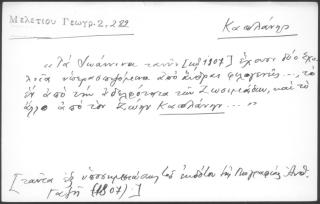 Μελετίου Γεωγρ. 2, 222
Καπλάνης
"Τὰ Ἰωάννινα τανῦν [1807] ἔχουσι δύο σχο-
λεῖα συστηθέντα ἀπὸ ἄνδρας φιλογενεῖς..., τὸ
ἓν ἀπὸ τὴν ἀδελφότητα τῶν Ζωσιμάδων, καὶ τὸ
ἄλλο ἀπὸ τὸν Ζώην Καπλάνην..."
[ταῦτα ἐξ ὑποσημειώσεως τοῦ ἐκδότου τῆς Γεωγραφίας Ἀνθ.
Γαζῆ (1807).]